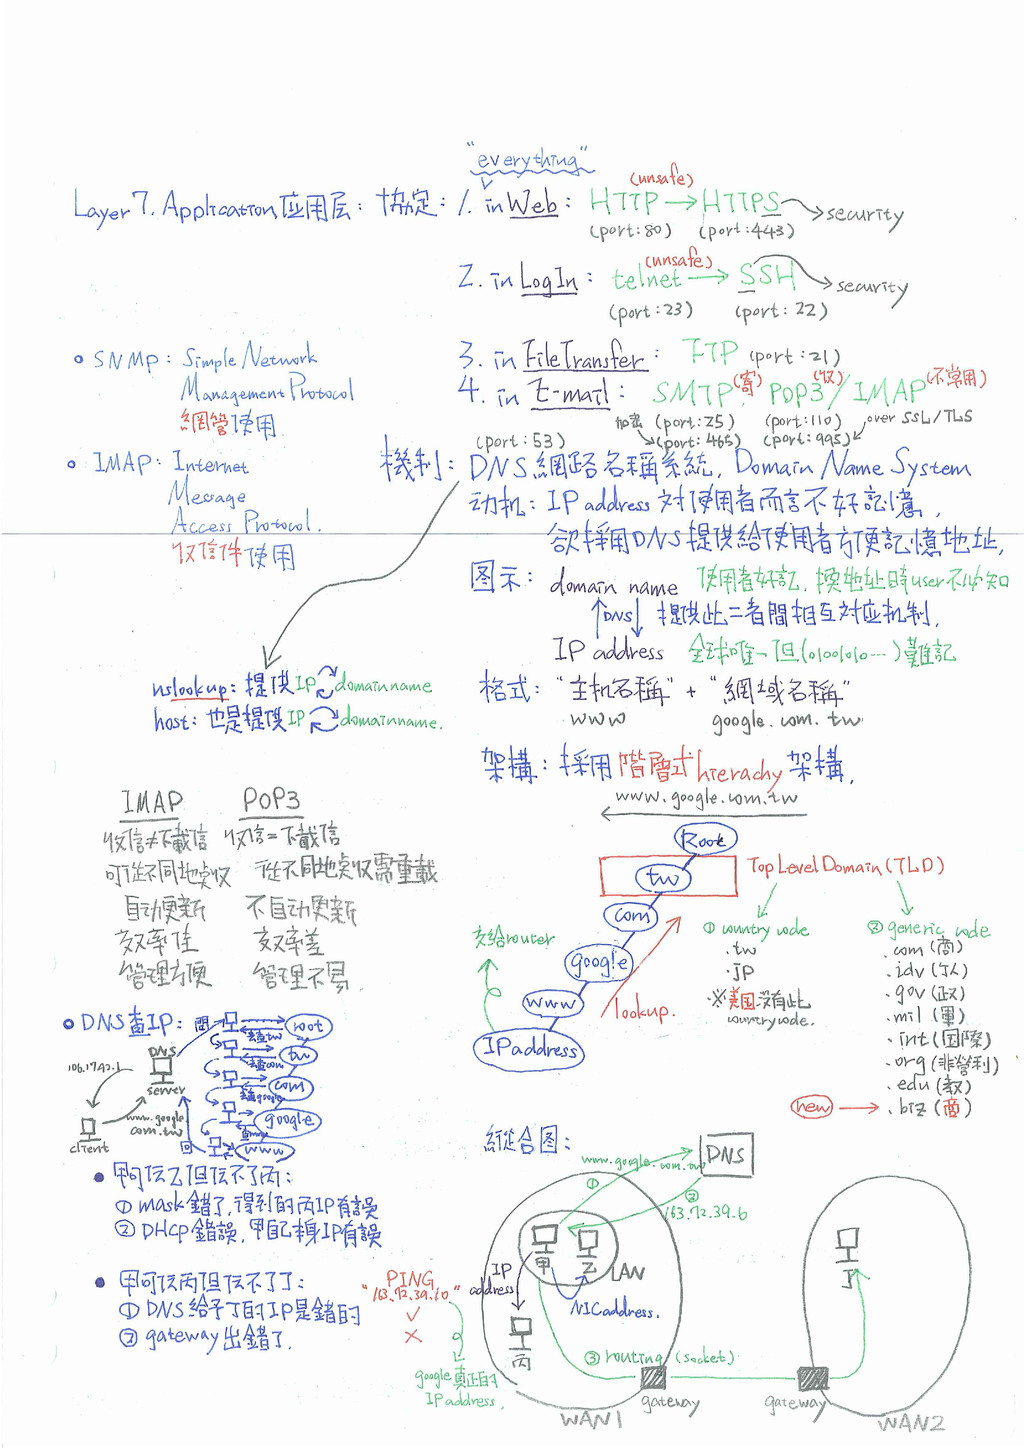 "everything"
Layer 7. Application 应用层: 協定: 1. in Web: HTTP (unsafe) → HTTPS → security
(port:80) (port:443)
2. in LogIn: telnet (unsafe) → SSH → security
(port:23) (port:22)
3. in FileTransfer: FTP (port:21)
4. in E-mail: SMTP(寄) POP3(收)/IMAP(不常用)
加密 (port:25) (port:110) over SSL/TLS
(port:465) (port:995)
• SNMP: Simple Network
Management Protocol
網管使用
• IMAP: Internet
Message
Access Protocol.
收信件使用
(port:53)
機制: DNS 網路名稱系統, Domain Name System
动机: IP address 対使用者而言不好記憶,
欲採用DNS提供給使用者方便記憶地址,
图示: domain name 使用者好記, 換地址時user不必知
↑DNS↓ 提供此二者間相互対应机制,
IP address 全球唯一但(01001010...)難記
nslookup: 提供IP domainname
host: 也是提供IP domainname.
格式: "主机名稱" + "網域名稱"
www google.com.tw
架構: 採用階層式hierachy架構,
www.google.com.tw
Root
tw
com
google
www
IP address
lookup.
交給router
Top Level Domain (TLD)
① country code
.tw
.jp
※美国没有此
country code.
② generic code
.com (商)
.idv (个人)
.gov (政)
.mil (軍)
.int (国際)
.org (非營利)
.edu (教)
new → .biz (商)
IMAP POP3
收信≠下載信 收信=下載信
可從不同地点收 從不同地点收需重載
自动更新 不自动更新
效率佳 效率差
管理方便 管理不易
• DNS查IP: 問 root
去查tw
tw
去查com
com
去查google
google
查www
www
回
DNS
server
106.17.42.1
www.google
com.tw
client
• 甲可传乙但传不了丙:
① mask錯了,得到的丙IP有誤
② DHCP錯誤,甲自己本身IP有誤
• 甲可传丙但传不了丁:
① DNS給予丁的IP是錯的
② gateway出錯了.
PING
"163.72.39.10"
✓
×
google真正的
IP address.
綜合图:
www.google.com.tw
DNS
①
②
163.72.39.6
甲 乙
LAN
IP
address
NIC address.
丙
③ routing (socket)
gateway
WAN1
丁
gateway
WAN2